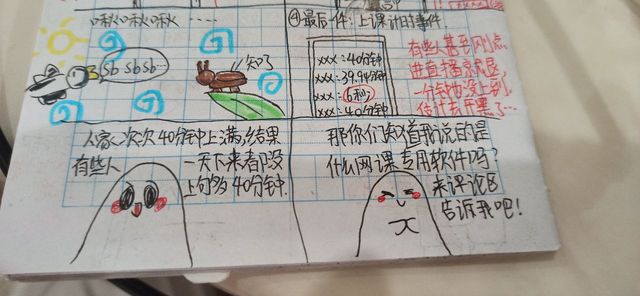 啾啾啾……
sb sb sb…
知了
④最后一件:上课计时事件
xxx:40分钟
xxx:39.94分钟
xxx:6秒
xxx:40分钟
有些人甚至网刚点
进直播就退,
一分钟也没上到,
估计去开黑了…
人家次次40分钟上满,结果
有些人
一天下来都没
上够40分钟
那你们知道我说的是
什么网课专用软件吗?
来评论区
告诉我吧!